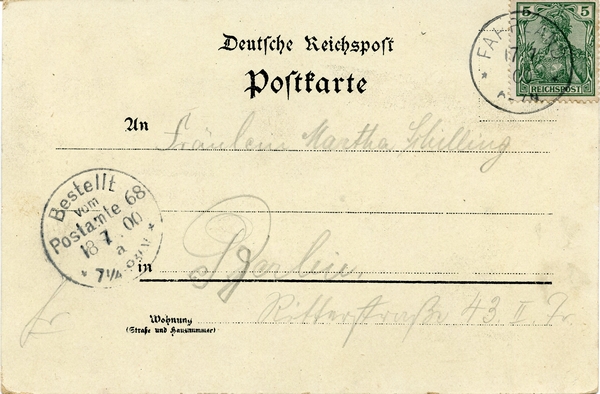 Deutsche Reichspost
Postkarte
5 5
REICHSPOST
FAX
17
An Fräulein Martha Schilling
Bestellt
vom
Postamte 68
18 7 00
a
7¼-8¾N
in Berlin
Ritterstraße 43. II Tr.
Wohnung
(Straße und Hausnummer)
fr